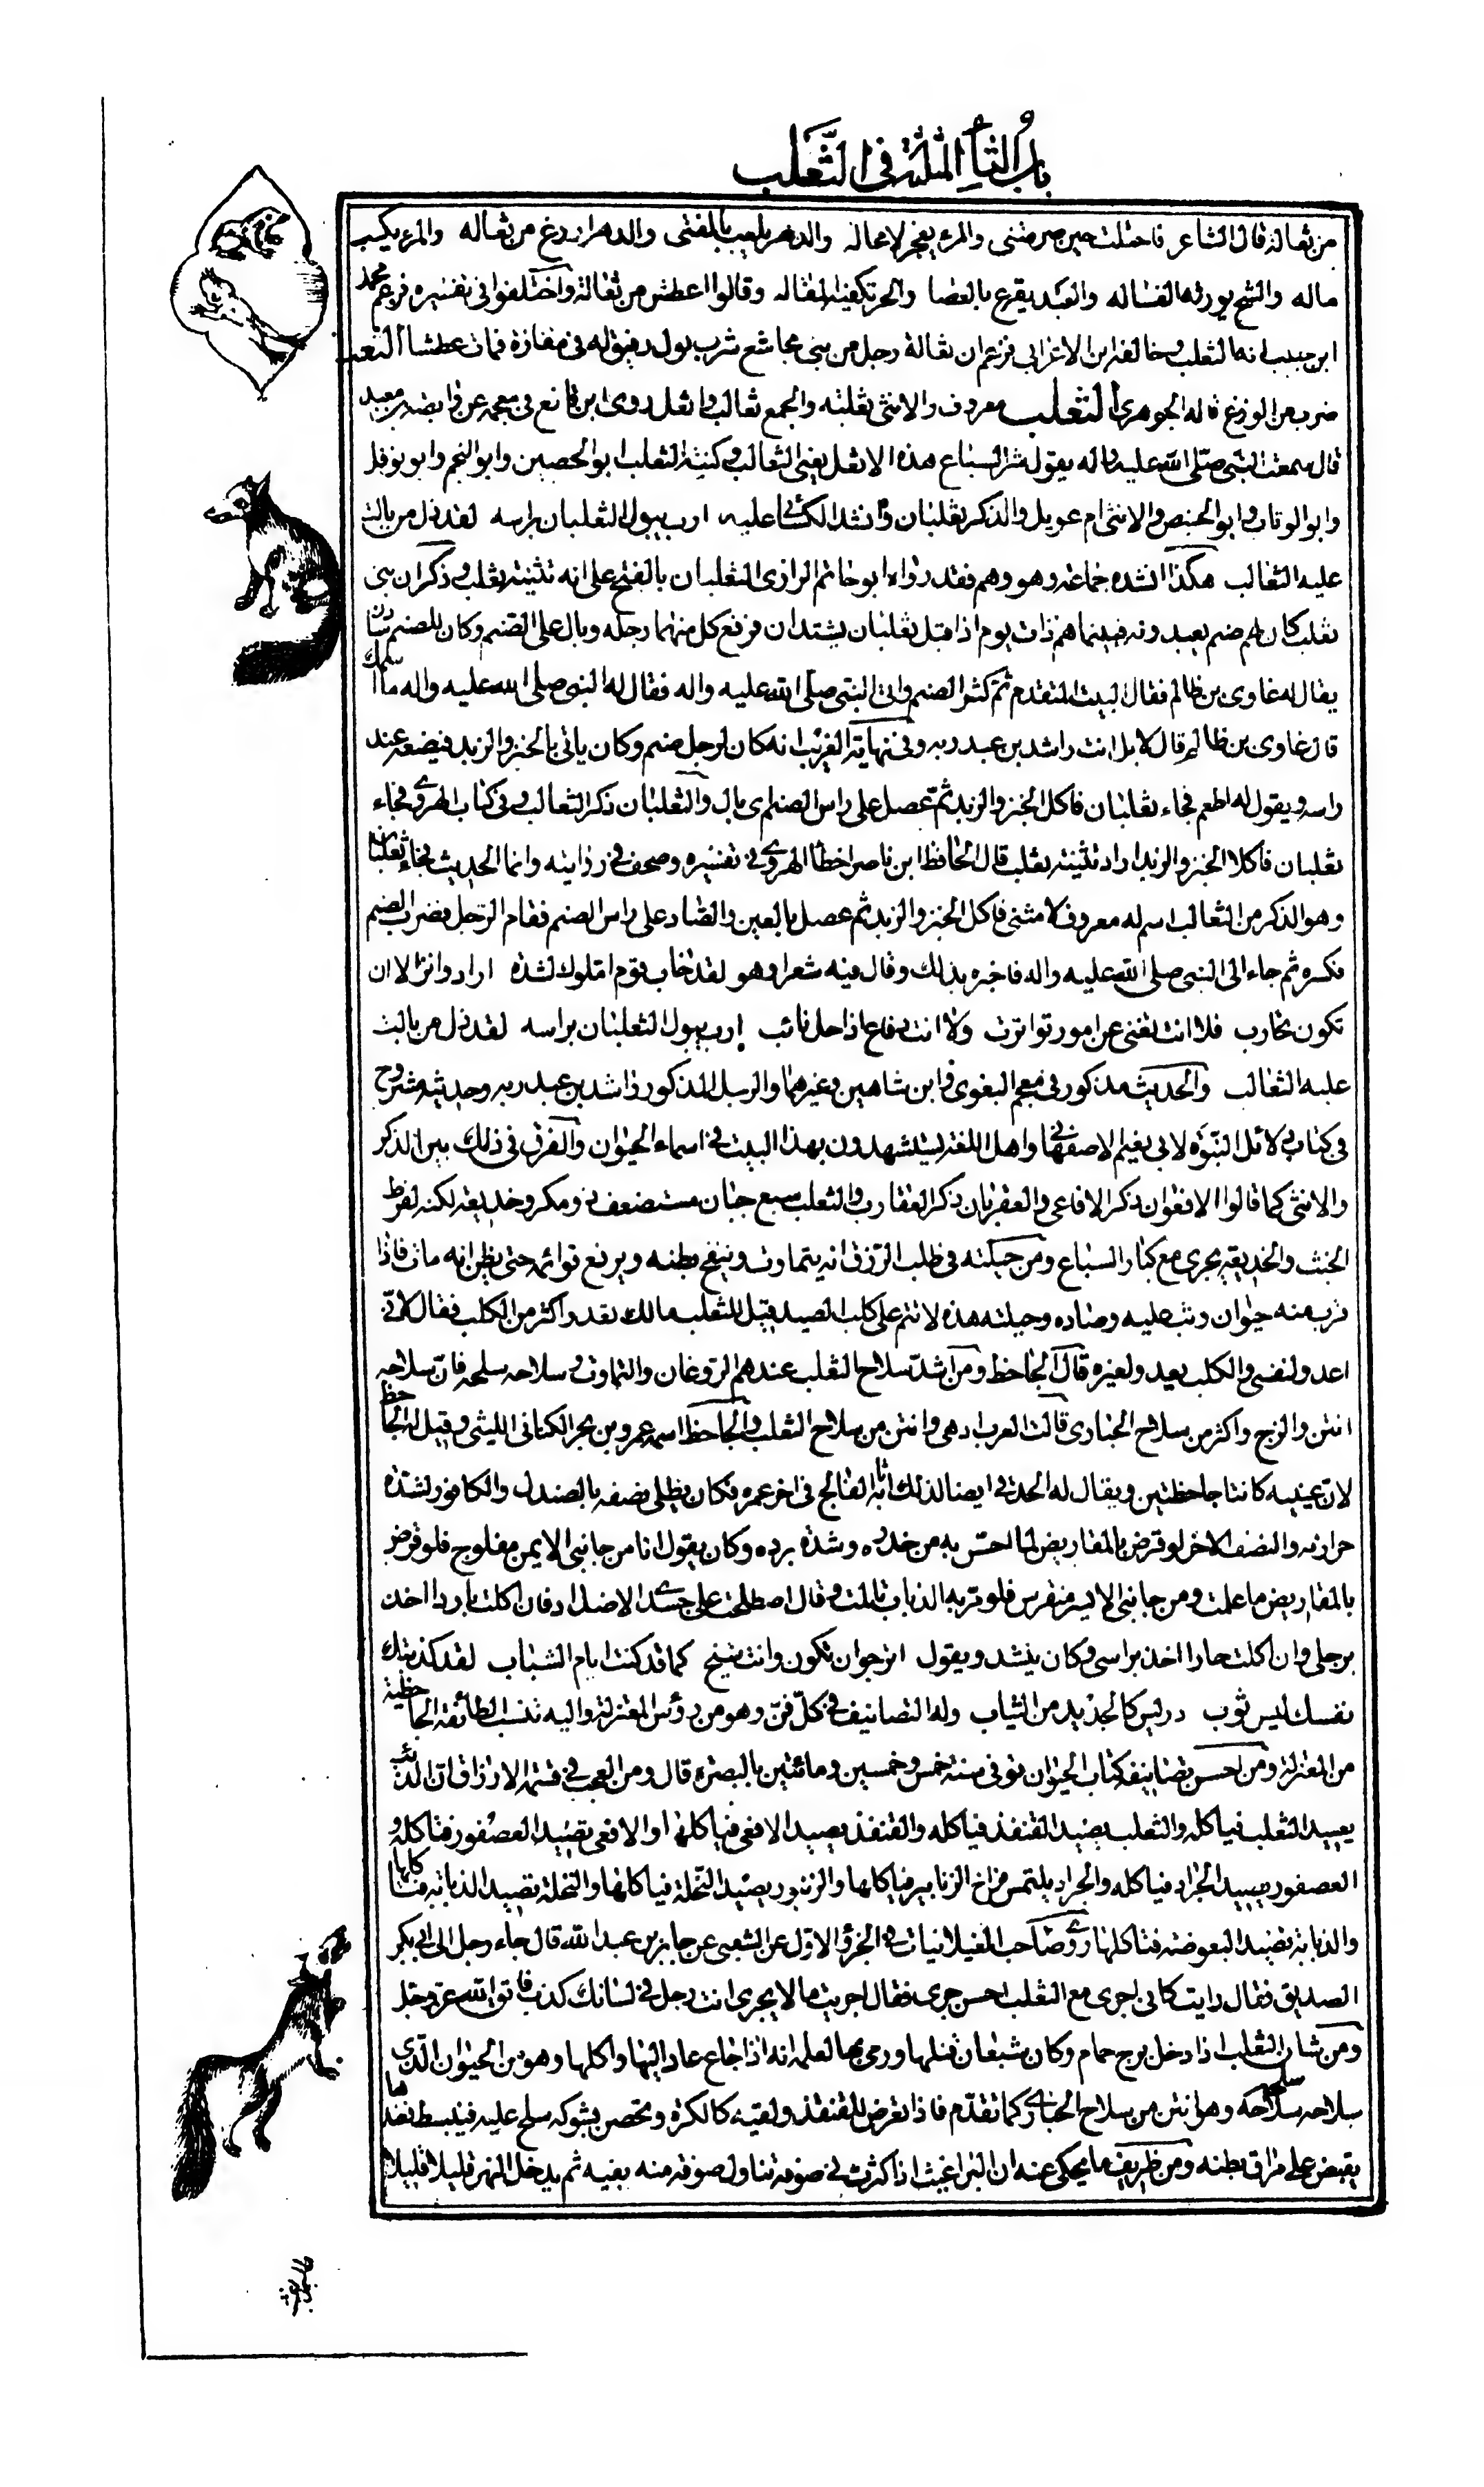 باب الثاء المثلثة فى الثعلب
من ثعالة قال الشاعر فاحتلت حين صرمتنى والمرء يعجز لا محاله والدهر يلعب بالفتى والدهر اروغ من ثعاله والمرء يكسب
ماله والشح يورثه الفساله والعبد يقرع بالعصا والحر تكفيه المقاله وقالوا اعطش من ثعالة واختلفوا فى تفسيره فزعم محمد
ابن حبيب انه الثعلب وخالفه ابن الاعرابى فزعم ان ثعالة رجل من بنى مجاشع شرب بول رفيق له فى مفازة فمات عطشا الثعبة
ضرب من الوزغ قاله الجوهرى الثعلب معروف والانثى ثعلبة والجمع ثعالب واثعل روى ابن قانع فى معجمه عن وابصة بن معبد
قال سمعت النبى صلى الله عليه واله يقول شر السباع هذه الاثعل يعنى الثعالب وكنية الثعلب ابو الحصين وابو النجم وابو نوفل
وابو الوثاب وابو الحنبص والانثى ام عويل والذكر ثعلبان وانشد الكسائى عليه ارب يبول الثعلبان براسه لقد ذل من بالت
عليه الثعالب هكذا انشده جماعة وهو وهم فقد رواه ابو حاتم الرازى الثعلبان بالفتح على انه تثنية ثعلب وذكر ان بنى
ثعلب كان لهم صنم يعبدونه فبينما هم ذات يوم اذا قبل ثعلبان يشتدان فرفع كل منهما رجله وبال على الصنم وكان للصنم سادن
يقال له غاوى بن ظالم فقال البيت المتقدم ثم كسر الصنم واتى النبى صلى الله عليه واله فقال له النبى صلى الله عليه واله ما اسمك
قال غاوى بن ظالم قال لا بل انت راشد بن عبد ربه وفى نهاية الغريب انه كان لرجل صنم وكان ياتى بالخبز والزبد فيضعه عند
راسه ويقول له اطعم فجاء ثعلبان فاكل الخبز والزبد ثم عصل على راس الصنم اى بال والثعلبان ذكر الثعالب وفى كتاب الهروى فجاء
ثعلبان فاكلا الخبز والزبد اراد تثنية ثعلب قال الحافظ ابن ناصر اخطا الهروى فى تفسيره وصحف فى روايته وانما الحديث فجاء ثعلبان
وهو الذكر من الثعالب اسم له معروف لا مثنى فاكل الخبز والزبد ثم عصل بالعين والصاد على راس الصنم فقام الرجل فضرب الصنم
فكسره ثم جاء الى النبى صلى الله عليه واله فاخبره بذلك وقال فيه شعرا وهو لقد خاب قوم املوك لشدة ارادوا نزالا ان
تكون تحارب فلا انت تغنى عن امور تواترت ولا انت دفاع اذا حل نائب ارب يبول الثعلبان براسه لقد ذل من بالت
عليه الثعالب والحديث مذكور فى معجم البغوى وابن شاهين وغيرهما والرجل المذكور راشد بن عبد ربه وحديثه مشروح
فى كتاب دلائل النبوة لابى نعيم الاصفهانى واهل اللغة يستشهدون بهذا البيت فى اسماء الحيوان والفرق فى ذلك بين الذكر
والانثى كما قالوا الافعوان ذكر الافاعى والعقربان ذكر العقارب والثعلب سبع جبان مستضعف ذو مكر وخديعة لكنه لفرط
الخبث والخديعة يجرى مع كبار السباع ومن حيلته فى طلب الرزق انه يتماوت وينفخ بطنه ويرفع قوائمه حتى يظن انه مات فاذا
قرب منه حيوان وثب عليه وصاده وحيلته هذه لا تتم على كلب الصيد قيل للثعلب مالك تعدو اكثر من الكلب فقال لانى
اعدو لنفسى والكلب يعد ولغيره قال الجاحظ ومن اشد سلاح الثعلب عندهم الروغان والتماوت وسلاحه سلحه فان سلاحه
انتن والزج واكثر من سلاح الحبارى قالت العرب ادهى وانتن من سلاح الثعلب والجاحظ اسمه عمرو بن بحر الكنانى الليثى وقيل له الجاحظ
لان عينيه كانتا جاحظتين ويقال له الحدقى ايضا لذلك اتاه الفالج فى اخر عمره فكان يطلى نصفه بالصندل والكافور لشدة
حرارته والنصف الاخر لو قرض بالمقاريض لما احس به من خدره وشدة برده وكان يقول انا من جانبى الايمن مفلوج فلو قرض
بالمقاريض ما علمت ومن جانبى الايسر منقرس فلو مر به الذباب تالمت وقال اصطلحت على جسدى الاضداد فان اكلت باردا اخذ
برجلى وان اكلت حارا اخذ براسى وكان ينشد ويقول اترجوان تكون وانت شيخ كما قد كنت ايام الشباب لقد كذبتك
نفسك ليس ثوب دريس كالجديد من الثياب وله التصانيف فى كل فن وهو من رؤس المعتزلة واليه تنسب الطائفة الجاحظية
من المعتزلة ومن احسن تصانيفه كتاب الحيوان توفى سنة خمس وخمسين ومائتين بالبصرة قال ومن العجب فى قسمة الارزاق ان الذئب
يصيد الثعلب فياكله والثعلب يصيد القنفذ فياكله والقنفذ يصيد الافعى فياكلها والافعى تصيد العصفور فتاكله و
العصفور يصيد الجراد فياكله والجراد يلتمس فراخ الزنابير فياكلها والزنبور يصيد النحلة فياكلها والنحلة تصيد الذبابة فتاكلها
والذبابة تصيد البعوضة فتاكلها روى صاحب الغيلانيات فى الجزؤ الاول عن الشعبى عن جابر بن عبد الله قال جاء رجل الى ابى بكر
الصديق فقال رايت كانى اجرى مع الثعلب احسن جرى فقال اجريت ما لا يجرى انت رجل فى لسانك كذب فاتق الله عز وجل
ومن شان الثعلب اذا دخل برج حمام وكان شبعان قتلها ورمى بها لعلمه انه اذا جاع عاد اليها واكلها وهو من الحيوان الذى
سلاحه سلاحه وهو انتن من سلاح الحبارى كما تقدم فاذا تعرض للقنفذ ولقيه كالكرة وتحصن بشوكه سلح عليه فينبسط فعندها
يقبض على مراق بطنه ومن ظريف ما يحكى عنه ان البراغيث اذا كثرت فى صوفه تناول صوفة منه بفيه ثم يدخل النهر قليلا قليلا